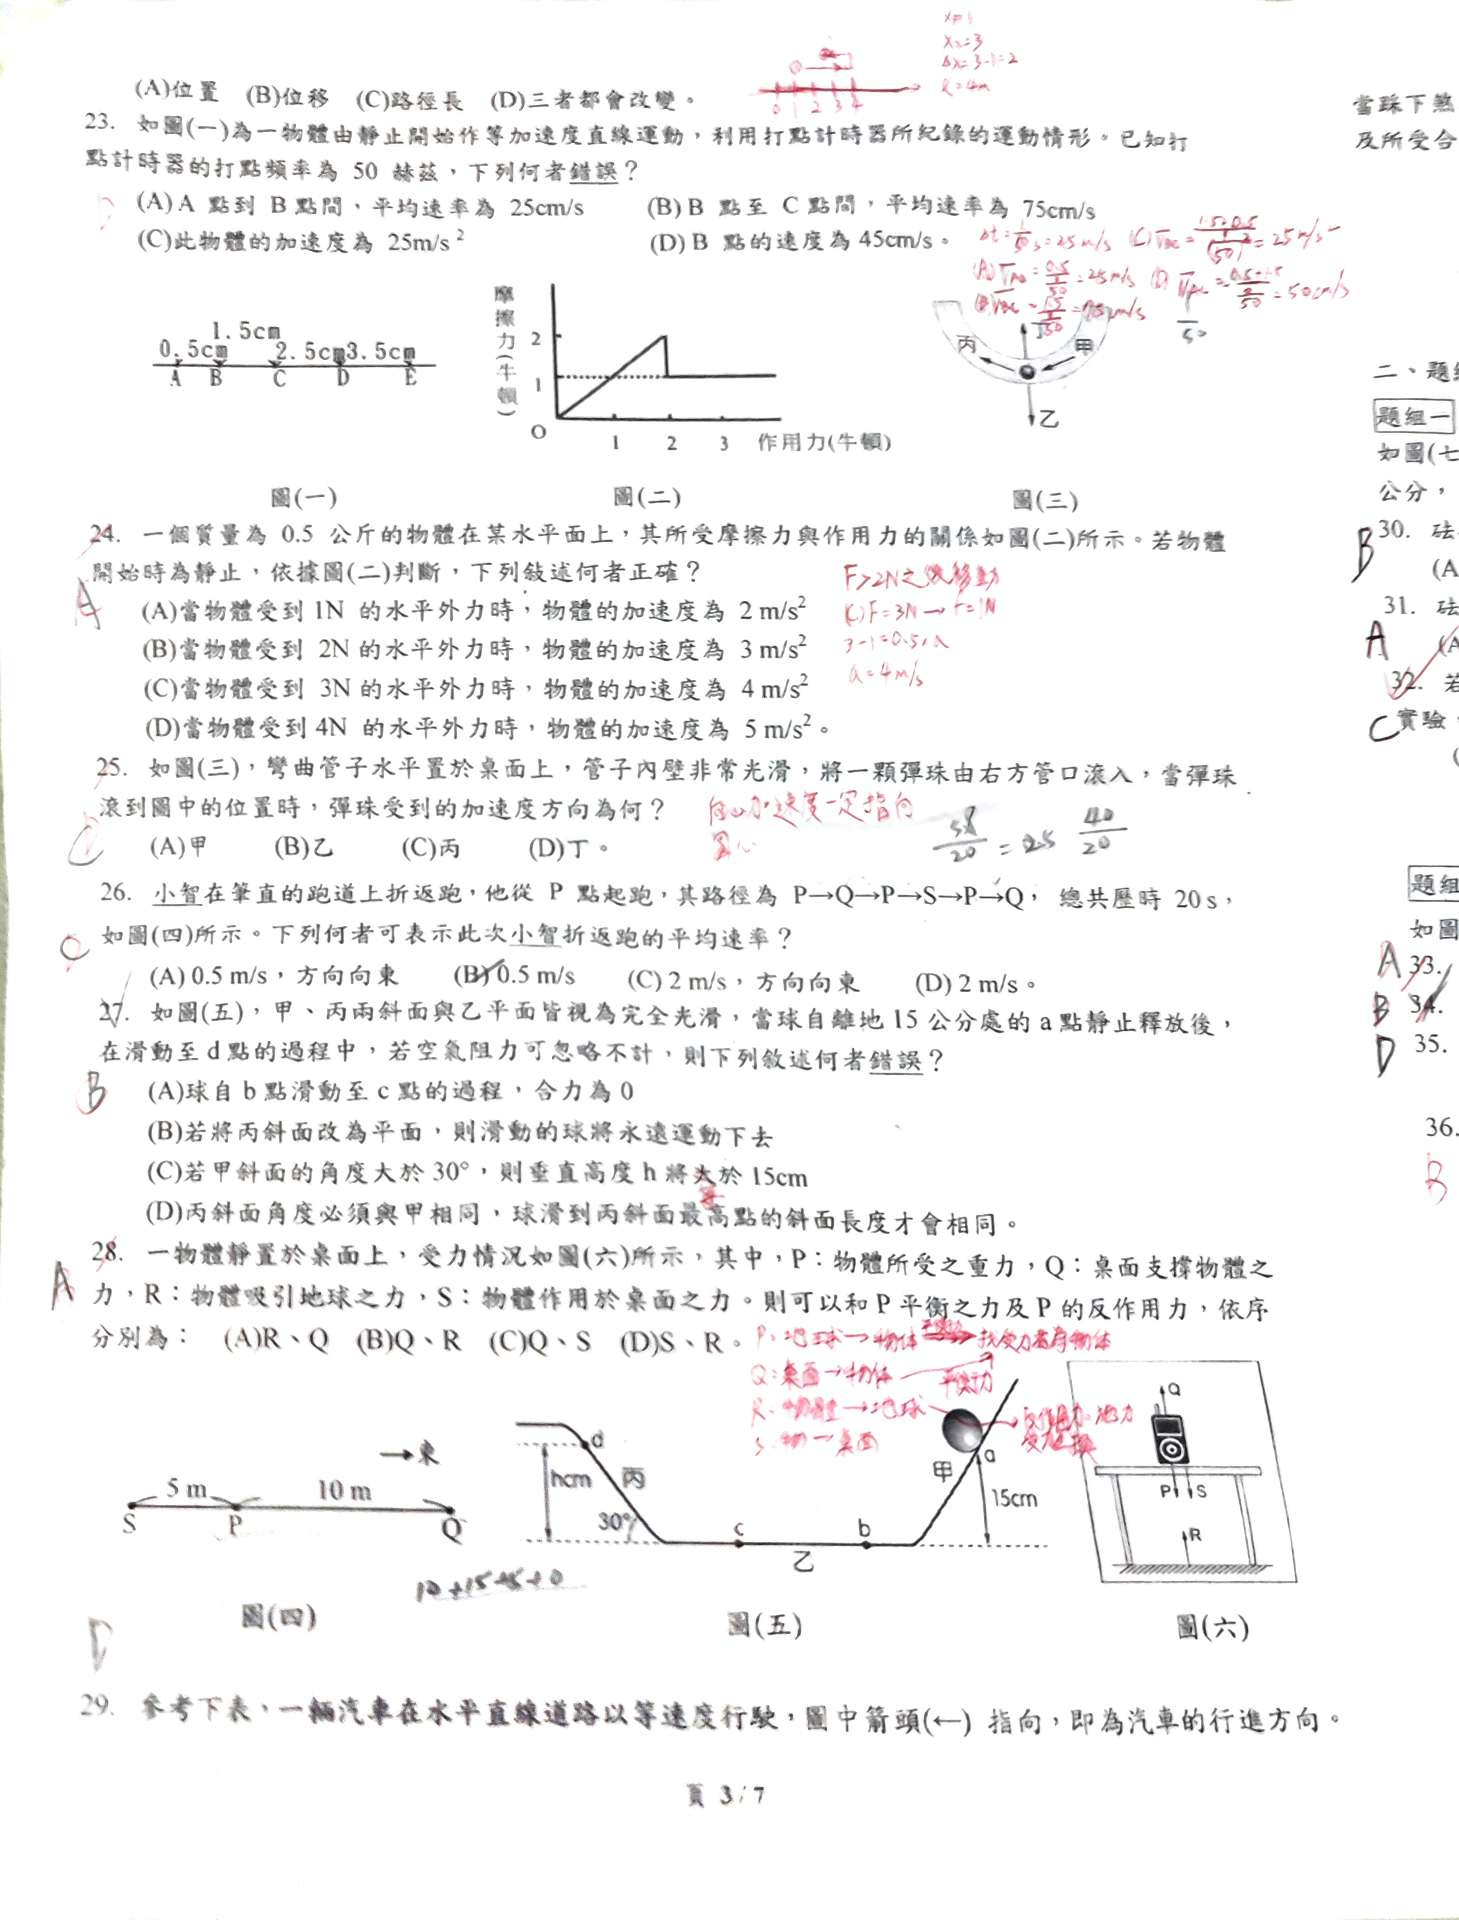 (A)位置 (B)位移 (C)路徑長 (D)三者都會改變。
0 1 2 3 4
X₂=3
ΔX=3-1=2
當踩下煞
及所受合
23. 如圖(一)為一物體由靜止開始作等加速度直線運動，利用打點計時器所紀錄的運動情形。已知打
點計時器的打點頻率為 50 赫茲，下列何者錯誤？
(A) A 點到 B 點間，平均速率為 25cm/s (B) B 點至 C 點間，平均速率為 75cm/s
(C)此物體的加速度為 25m/s² (D) B 點的速度為 45cm/s。
0.5cm 1.5cm 2.5cm 3.5cm
A B C D E
圖(一)
摩擦力(牛頓)
2
1
O 1 2 3 作用力(牛頓)
圖(二)
丙 丁 甲
乙
圖(三)
二、題
題組一
如圖(七
公分，
24. 一個質量為 0.5 公斤的物體在某水平面上，其所受摩擦力與作用力的關係如圖(二)所示。若物體
開始時為靜止，依據圖(二)判斷，下列敘述何者正確？
A
(A)當物體受到 1N 的水平外力時，物體的加速度為 2 m/s²
(B)當物體受到 2N 的水平外力時，物體的加速度為 3 m/s²
(C)當物體受到 3N 的水平外力時，物體的加速度為 4 m/s²
(D)當物體受到 4N 的水平外力時，物體的加速度為 5 m/s²。
(C)F=3N→f=1N
3-1=0.5×a
a=4m/s
25. 如圖(三)，彎曲管子水平置於桌面上，管子內壁非常光滑，將一顆彈珠由右方管口滾入，當彈珠
滾到圖中的位置時，彈珠受到的加速度方向為何？
向心加速度一定指向
圓心
C
(A)甲 (B)乙 (C)丙 (D)丁。
40/20
26. 小智在筆直的跑道上折返跑，他從 P 點起跑，其路徑為 P→Q→P→S→P→Q， 總共歷時 20 s，
如圖(四)所示。下列何者可表示此次小智折返跑的平均速率？
C
(A) 0.5 m/s，方向向東 (B) 0.5 m/s (C) 2 m/s，方向向東 (D) 2 m/s。
27. 如圖(五)，甲、丙兩斜面與乙平面皆視為完全光滑，當球自離地 15 公分處的 a 點靜止釋放後，
在滑動至 d 點的過程中，若空氣阻力可忽略不計，則下列敘述何者錯誤？
B
(A)球自 b 點滑動至 c 點的過程，合力為 0
(B)若將丙斜面改為平面，則滑動的球將永遠運動下去
(C)若甲斜面的角度大於 30°，則垂直高度 h 將大於 15cm
(D)丙斜面角度必須與甲相同，球滑到丙斜面最高點的斜面長度才會相同。
28. 一物體靜置於桌面上，受力情況如圖(六)所示，其中，P：物體所受之重力，Q：桌面支撐物體之
A
力，R：物體吸引地球之力，S：物體作用於桌面之力。則可以和 P 平衡之力及 P 的反作用力，依序
分別為： (A)R、Q (B)Q、R (C)Q、S (D)S、R。
P：地球→物体
Q：桌面→物体 平衡力
→東
5 m 10 m
S P Q
10+15+5+0
圖(四)
d
hcm 丙
30°
c b
乙
甲 a
15cm
圖(五)
Q
P S
R
圖(六)
D
29. 參考下表，一輛汽車在水平直線道路以等速度行駛，圖中箭頭(←) 指向，即為汽車的行進方向。
頁 3 / 7
B 30. 砝
(A
31. 砝
A (A
32. 若
C 實驗，
題組
如圖
A 33.
B 34.
D 35.
36.
B